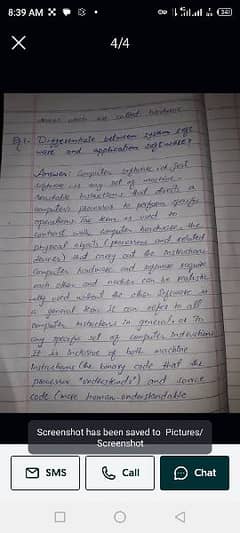 8:39 AM
4/4
which are called hardware
Differentiate between system soft
ware and application software?
Answer: Computer software, or just
software is any set of machine
instructions that directs a
computer's processor to perform specific
operations. The term is used to
contrast with computer hardware, the
physical objects (processors and related
devices) that carry out the instructions
Computer hardware and software require
each other and neither can be
used without the other. Software is
a general term. It can refer to all
computer instructions in general or to
any specific set of computer instructions
It is inclusive of both machine
instructions (the binary code that the
processor "understands") and source
code (more human-understandable
Screenshot has been saved to Pictures/
Screenshot
SMS
Call
Chat